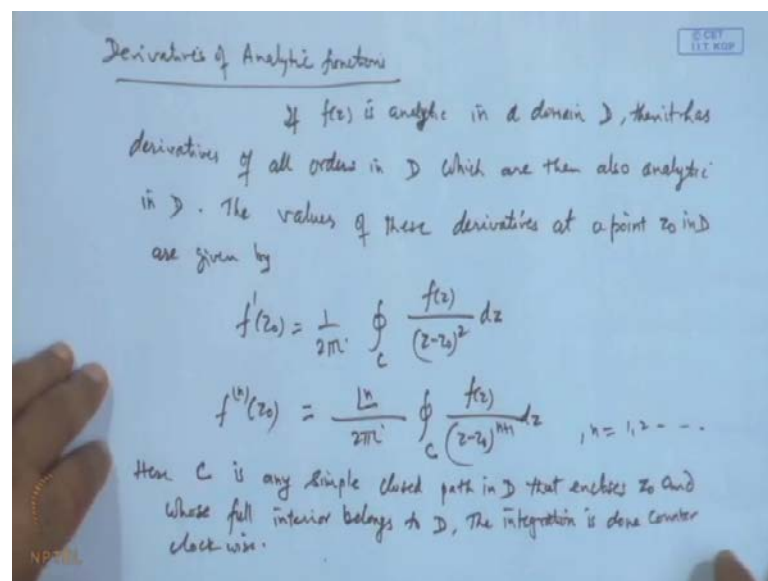 Derivatives of Analytic functions
© CET
I.I.T. KGP
If f(z) is analytic in a domain D, then it has
derivatives of all orders in D which are then also analytic
in D. The values of these derivatives at a point z₀ in D
are given by
f'(z₀) = 1/2πi ∮_C f(z)/(z-z₀)² dz
f⁽ⁿ⁾(z₀) = ⌊n/2πi ∮_C f(z)/(z-z₀)ⁿ⁺¹ dz , n = 1, 2 - - ·
Here C is any simple closed path in D that encloses z₀ and
whose full interior belongs to D, The integration is done counter
clock wise.
NPTEL